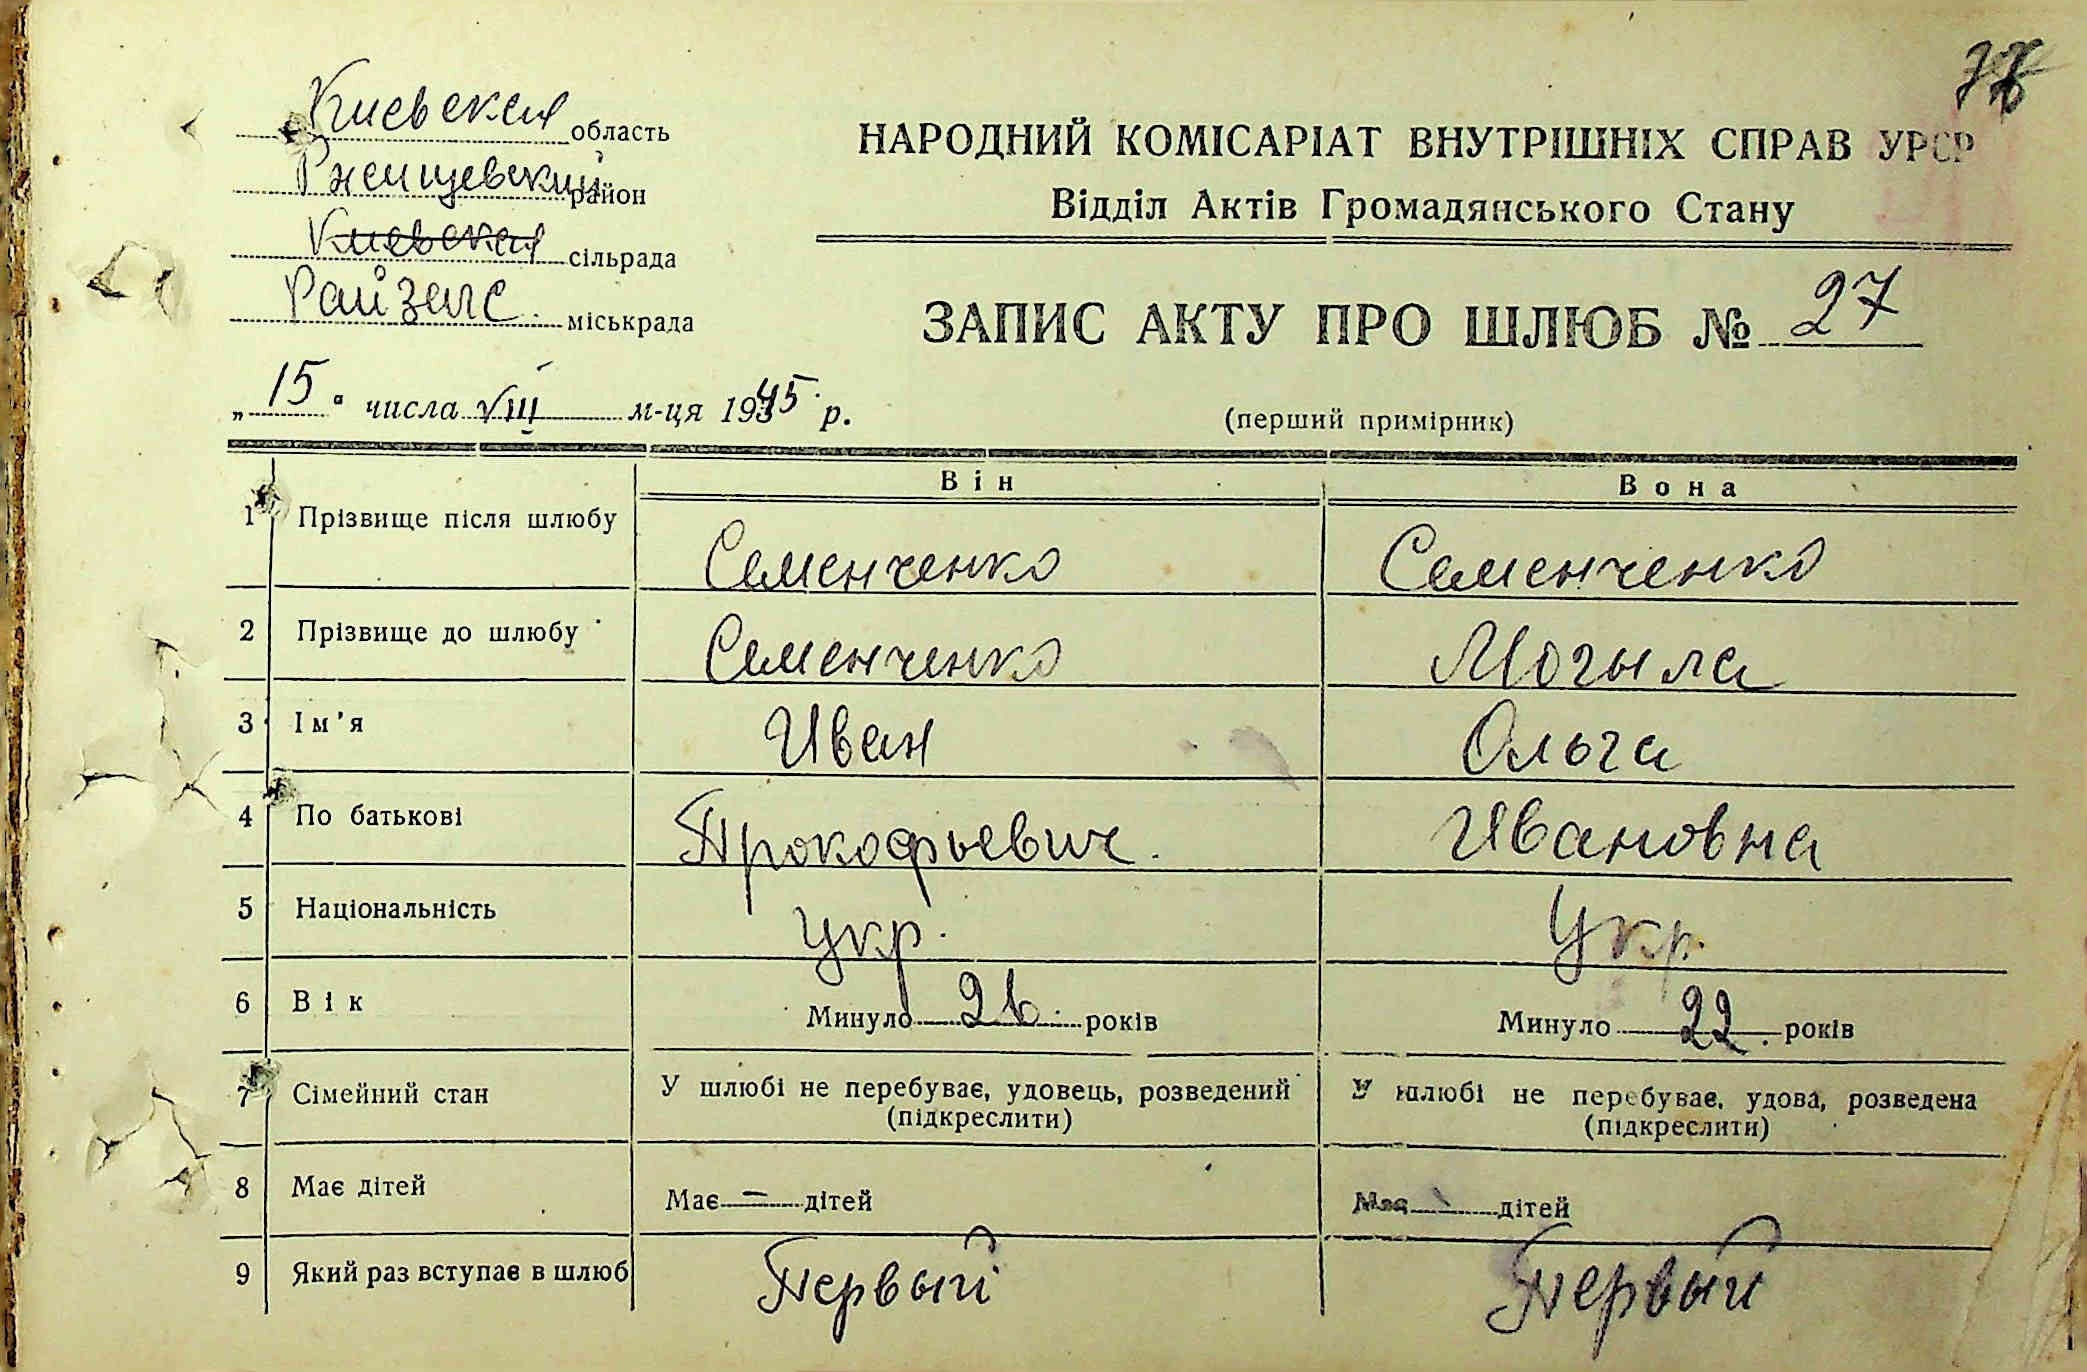 Киевская область
Ржищевский район
Киевская сільрада
Райзагс. міськрада
НАРОДНИЙ КОМІСАРІАТ ВНУТРІШНІХ СПРАВ УРСР
Відділ Актів Громадянського Стану
ЗАПИС АКТУ ПРО ШЛЮБ № 27
„ 15 " числа VIII м-ця 1945 р.
(перший примірник)
Він Вона
1 Прізвище після шлюбу Семенченко Семенченко
2 Прізвище до шлюбу Семенченко Могыла
3 Ім'я Иван Ольга
4 По батькові Прокофьевич. Ивановна
5 Національність укр. Укр.
6 Вік Минуло 26. років Минуло 22. років
7 Сімейний стан У шлюбі не перебуває, удовець, розведений У шлюбі не перебуває, удова, розведена
(підкреслити) (підкреслити)
8 Має дітей Має — дітей Має - дітей
9 Який раз вступає в шлюб Первый Первый